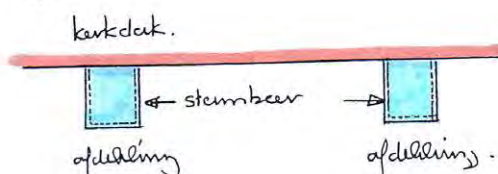 kerkdak.
steunbeer
afdekking afdekking.